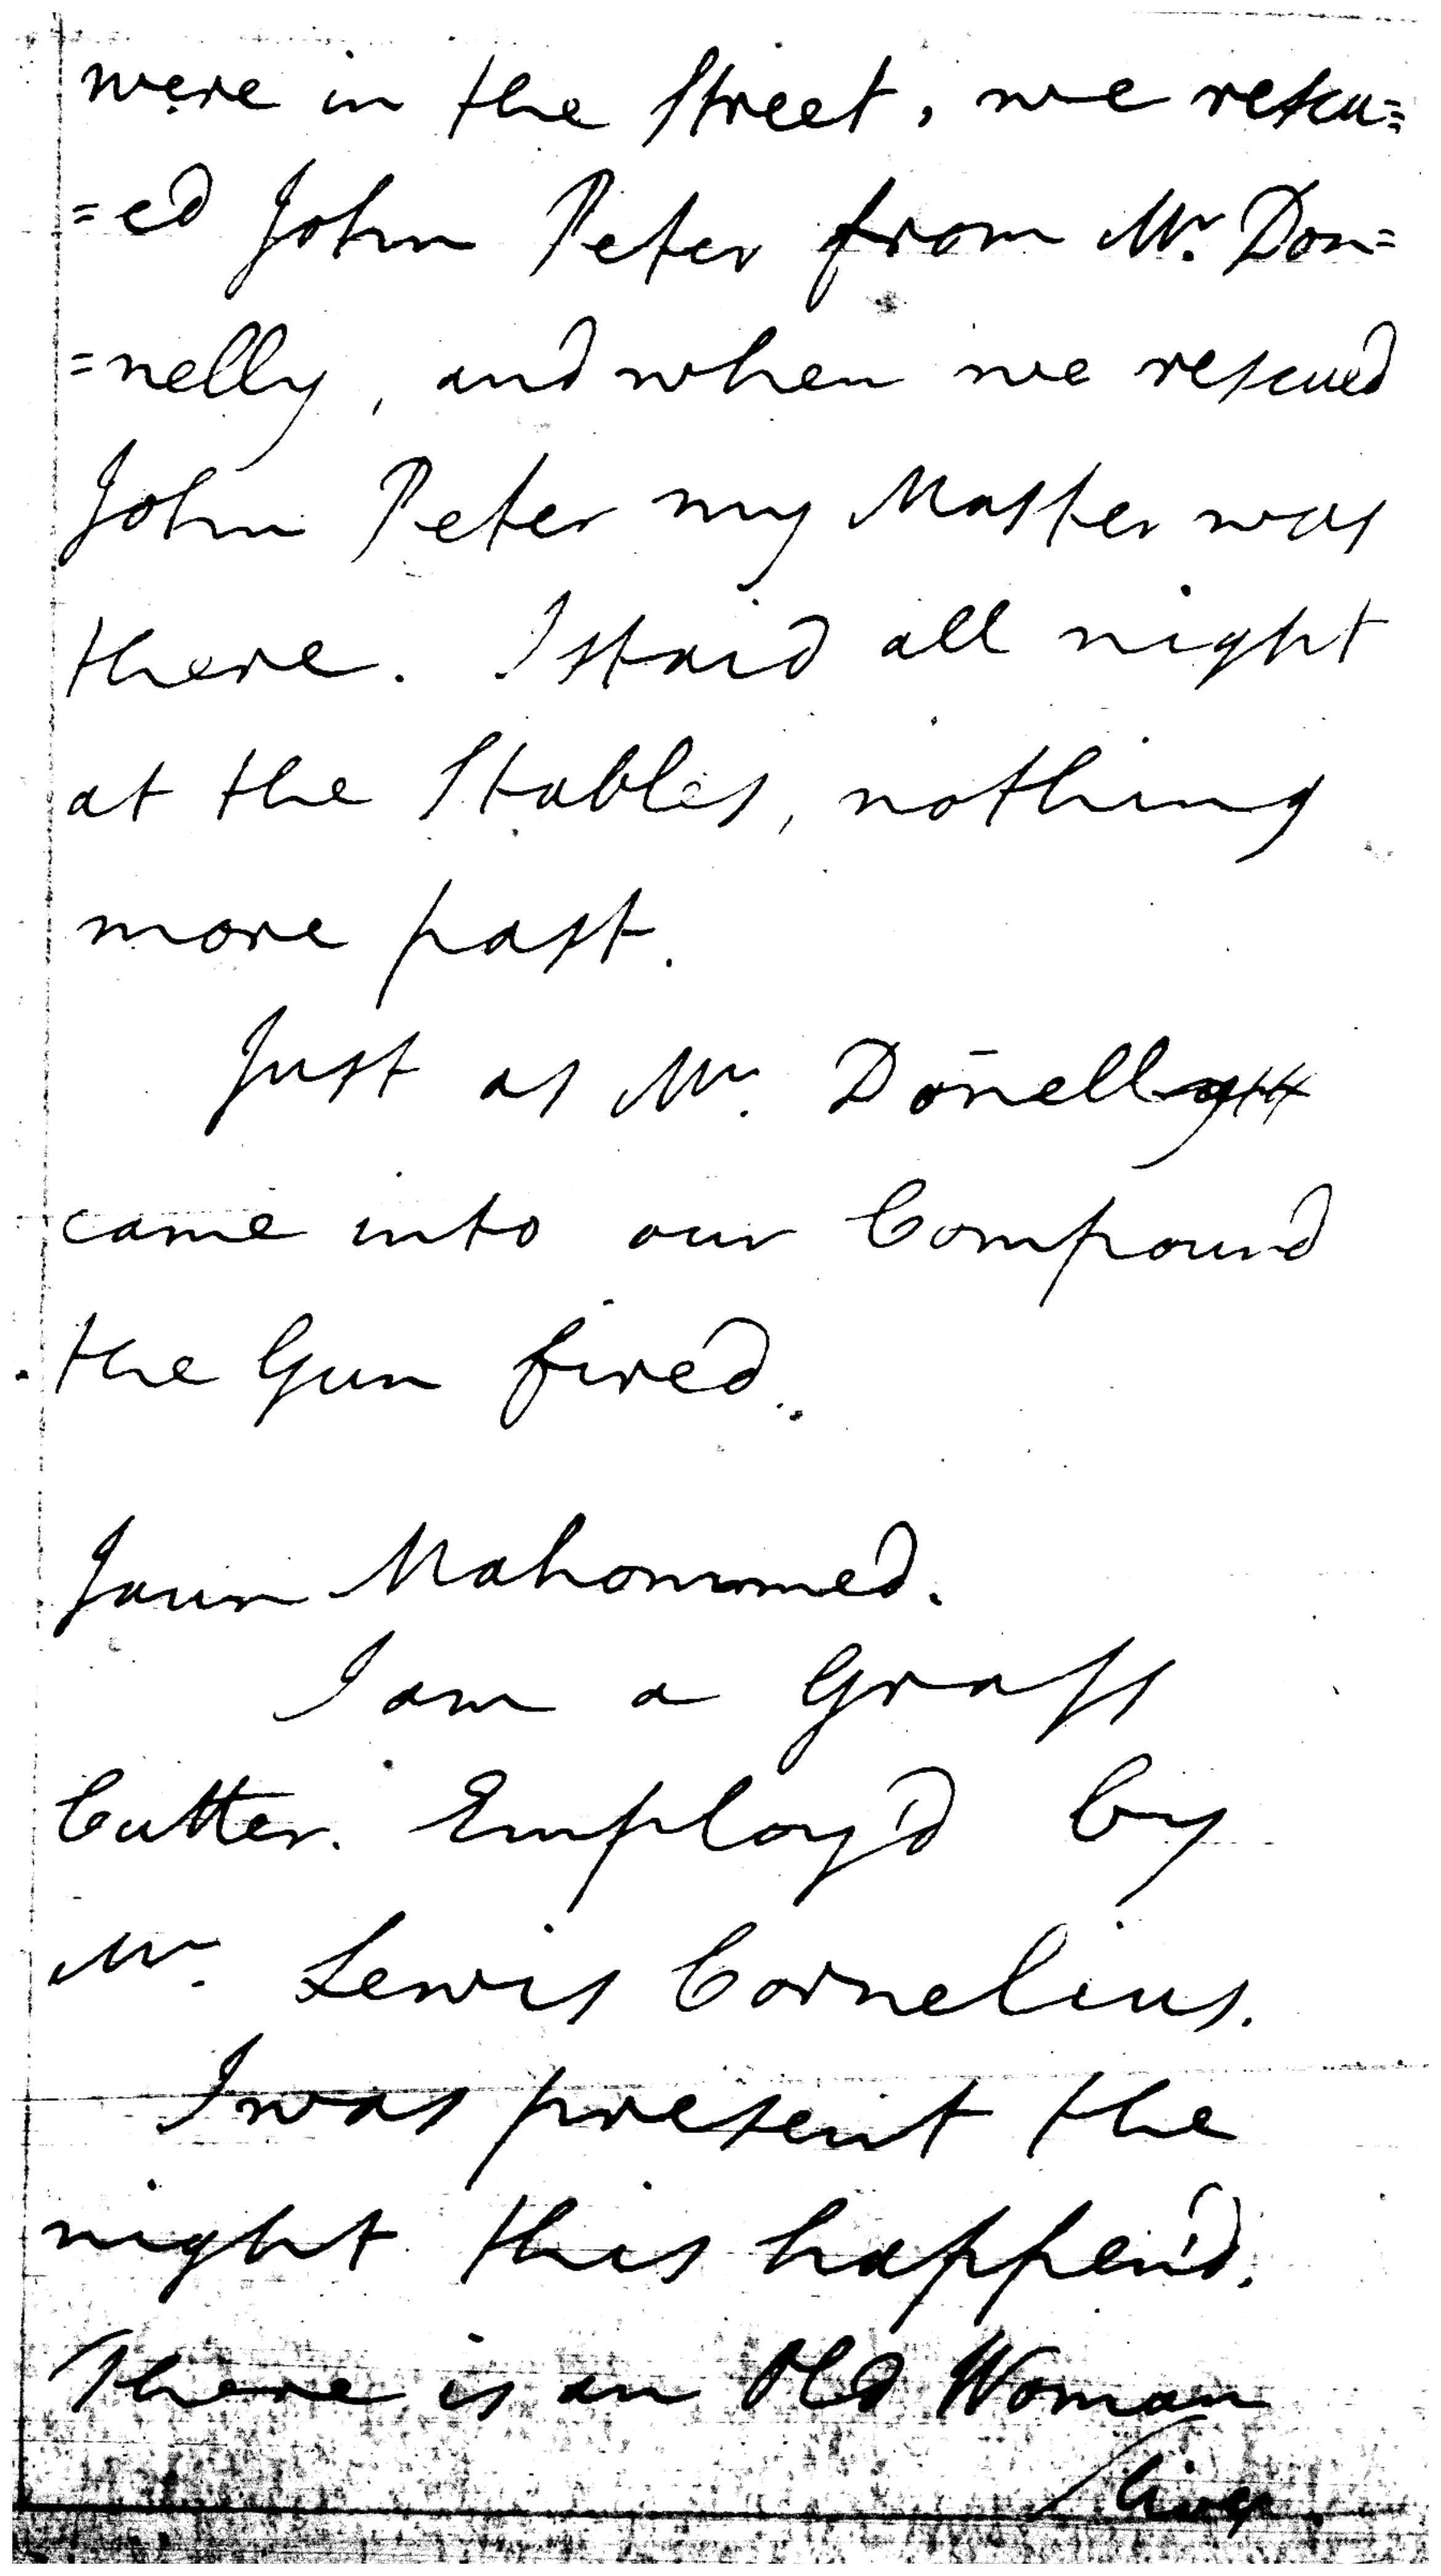 were in the Street, we rescu=
=ed John Peter from Mr. Don=
=nelly, and when we rescued
John Peter my Master was
there. I staid all night
at the Stables, nothing
more past.
Just as Mr. Donelly
came into our Compound
the Gun fired.
Jaun Mahommed.
I am a Grass
Cutter. Employ'd by
Mr. Lewis Cornelius.
I was present the
night this happen'd.
There is an Old Woman
/lives